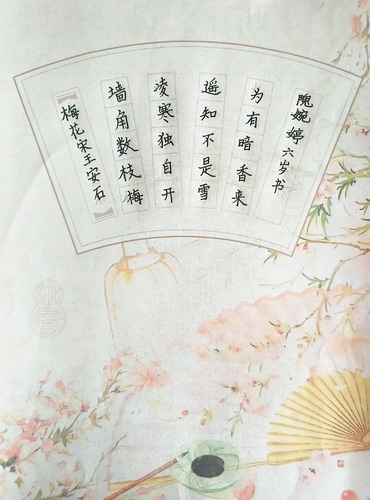 梅花宋王安石
墙角数枝梅
凌寒独自开
遥知不是雪
为有暗香来
隗婉婷六岁书